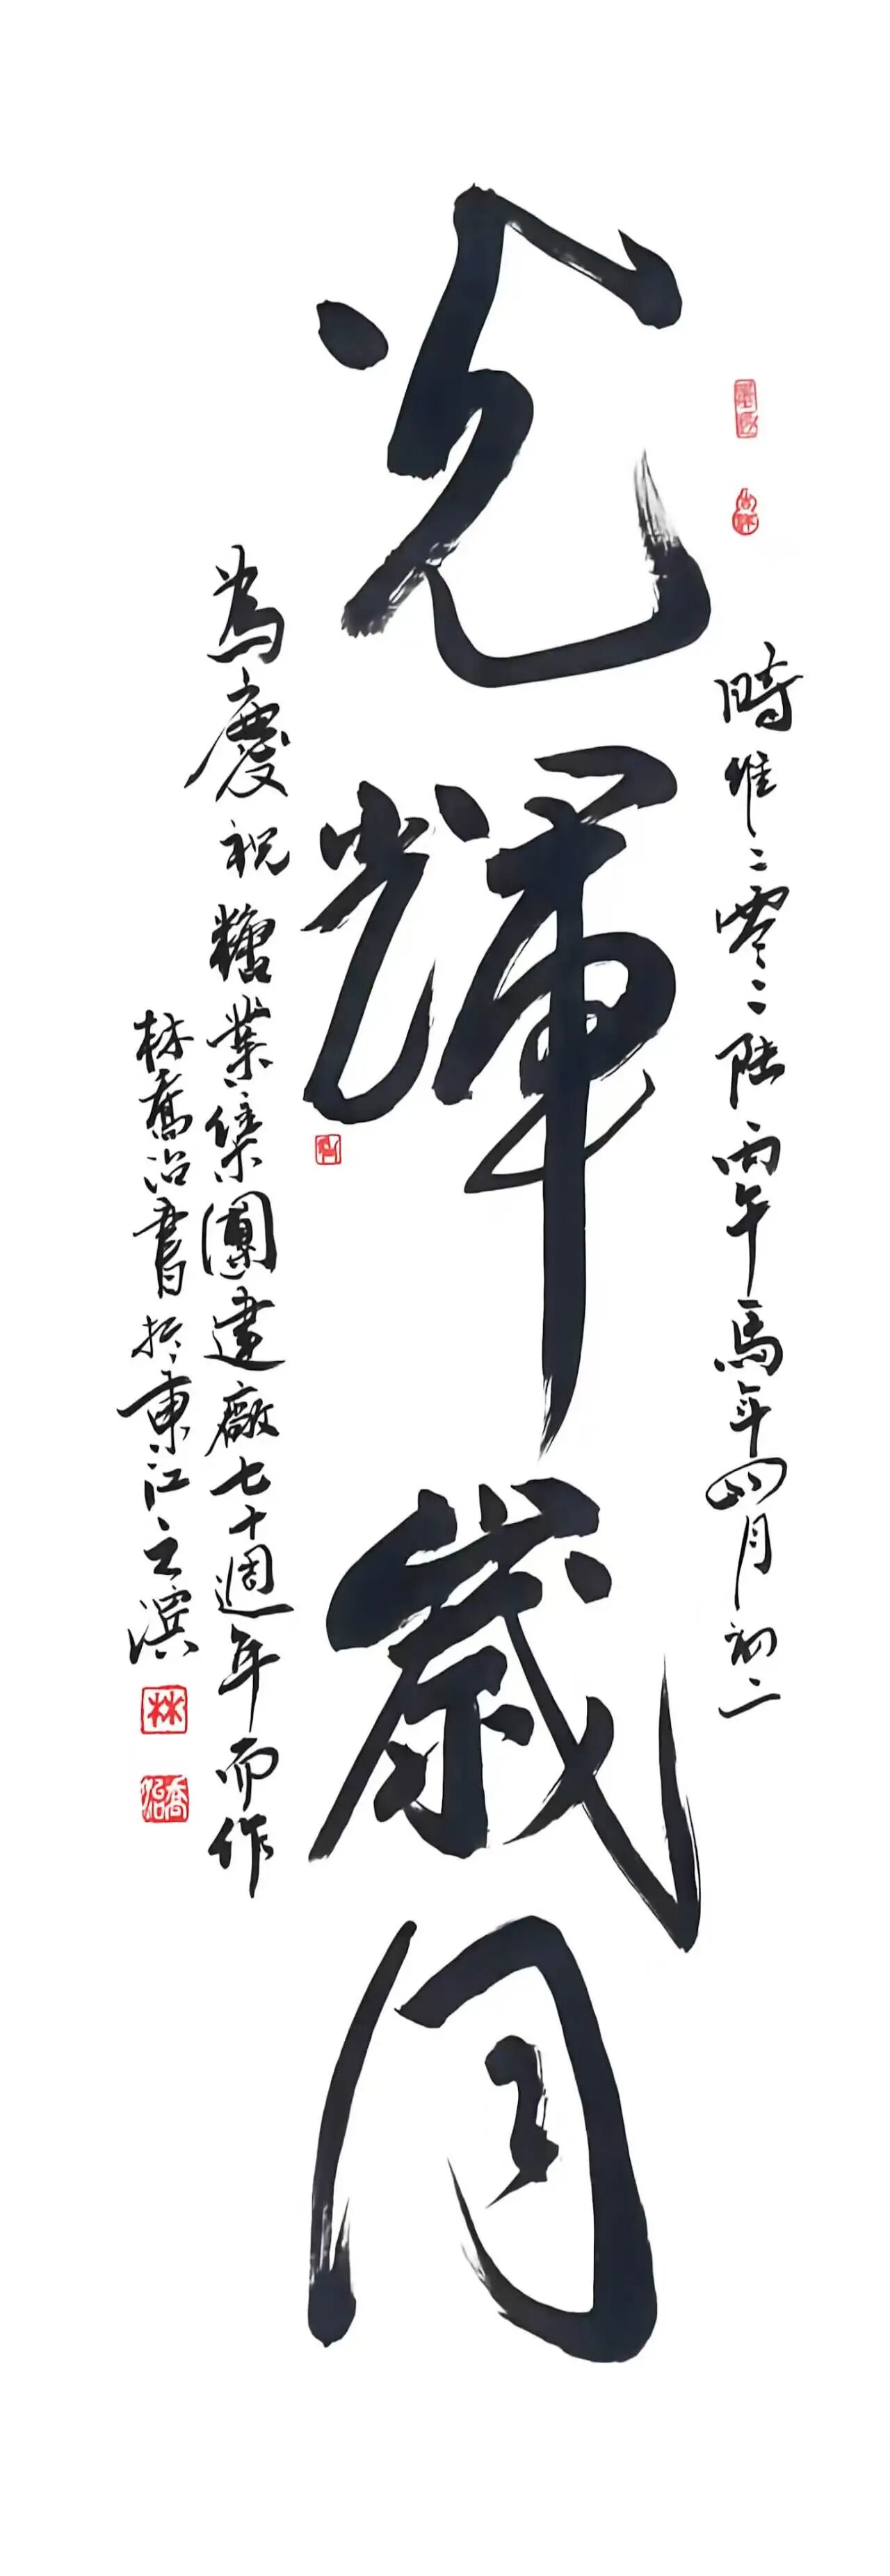 時維二零二陸丙午馬年四月初二
光輝歲月
為慶祝糖業集團建廠七十週年而作
林喬治書於東江之濱
林
喬治